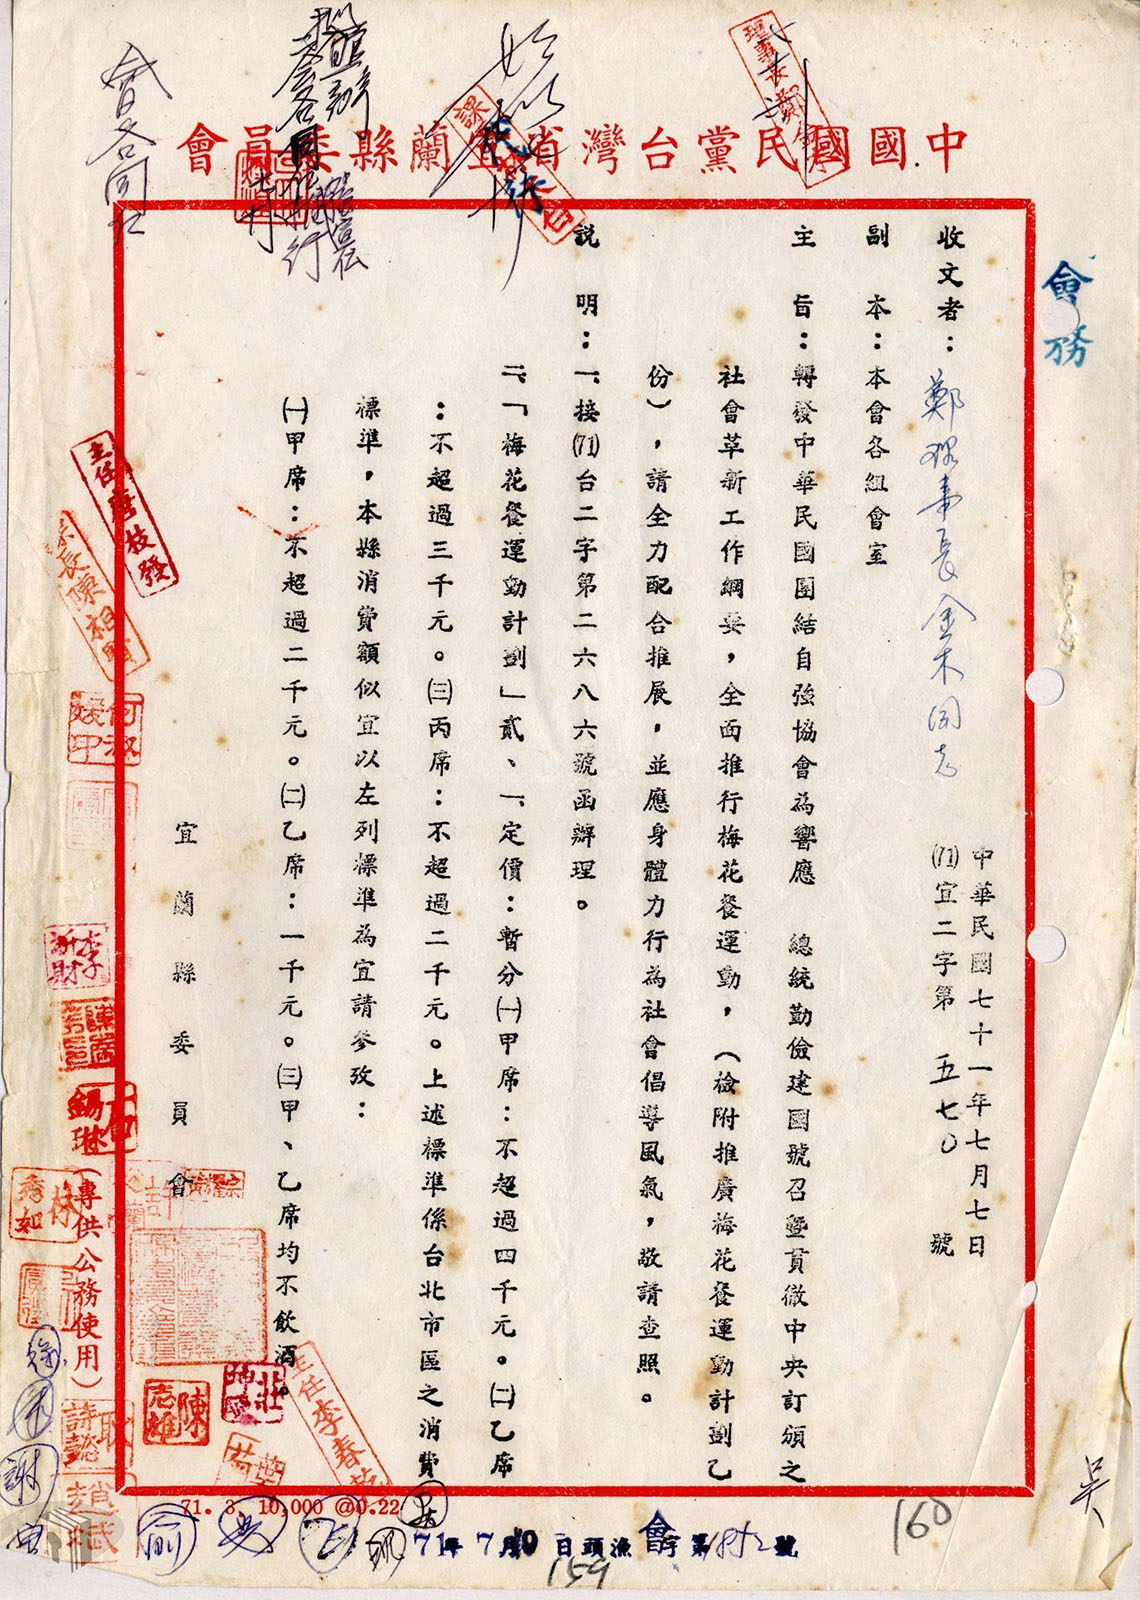 中國國民黨台灣省宜蘭縣委員會
會務
收文者：鄭理事長金木同志
中華民國七十一年七月七日
(71)宜二字第　五七〇　號
副　本：本會各組會室
主　旨：轉發中華民國團結自強協會為響應　總統勤儉建國號召曁貫徹中央訂頒之
社會革新工作綱要，全面推行梅花餐運動，（檢附推廣梅花餐運動計劃乙
份），請全力配合推展，並應身體力行為社會倡導風氣，敬請查照。
説　明：一、接(71)台二字第二六八六號函辦理。
二、「梅花餐運動計劃」貳、一、定價：暫分㈠甲席：不超過四千元。㈡乙席
：不超過三千元。㈢丙席：不超過二千元。上述標準係台北市區之消費
標準，本縣消費額似宜以左列標準為宜請參攷：
㈠甲席：不超過二千元。㈡乙席：一千元。㈢甲、乙席均不飲酒。
宜蘭縣委員會
（專供公務使用）
主任李春
陳志雄
林秀如
李新財
71. 3. 10,000 @0.22
71年7月10日頭漁會字第
號
159
160
吳